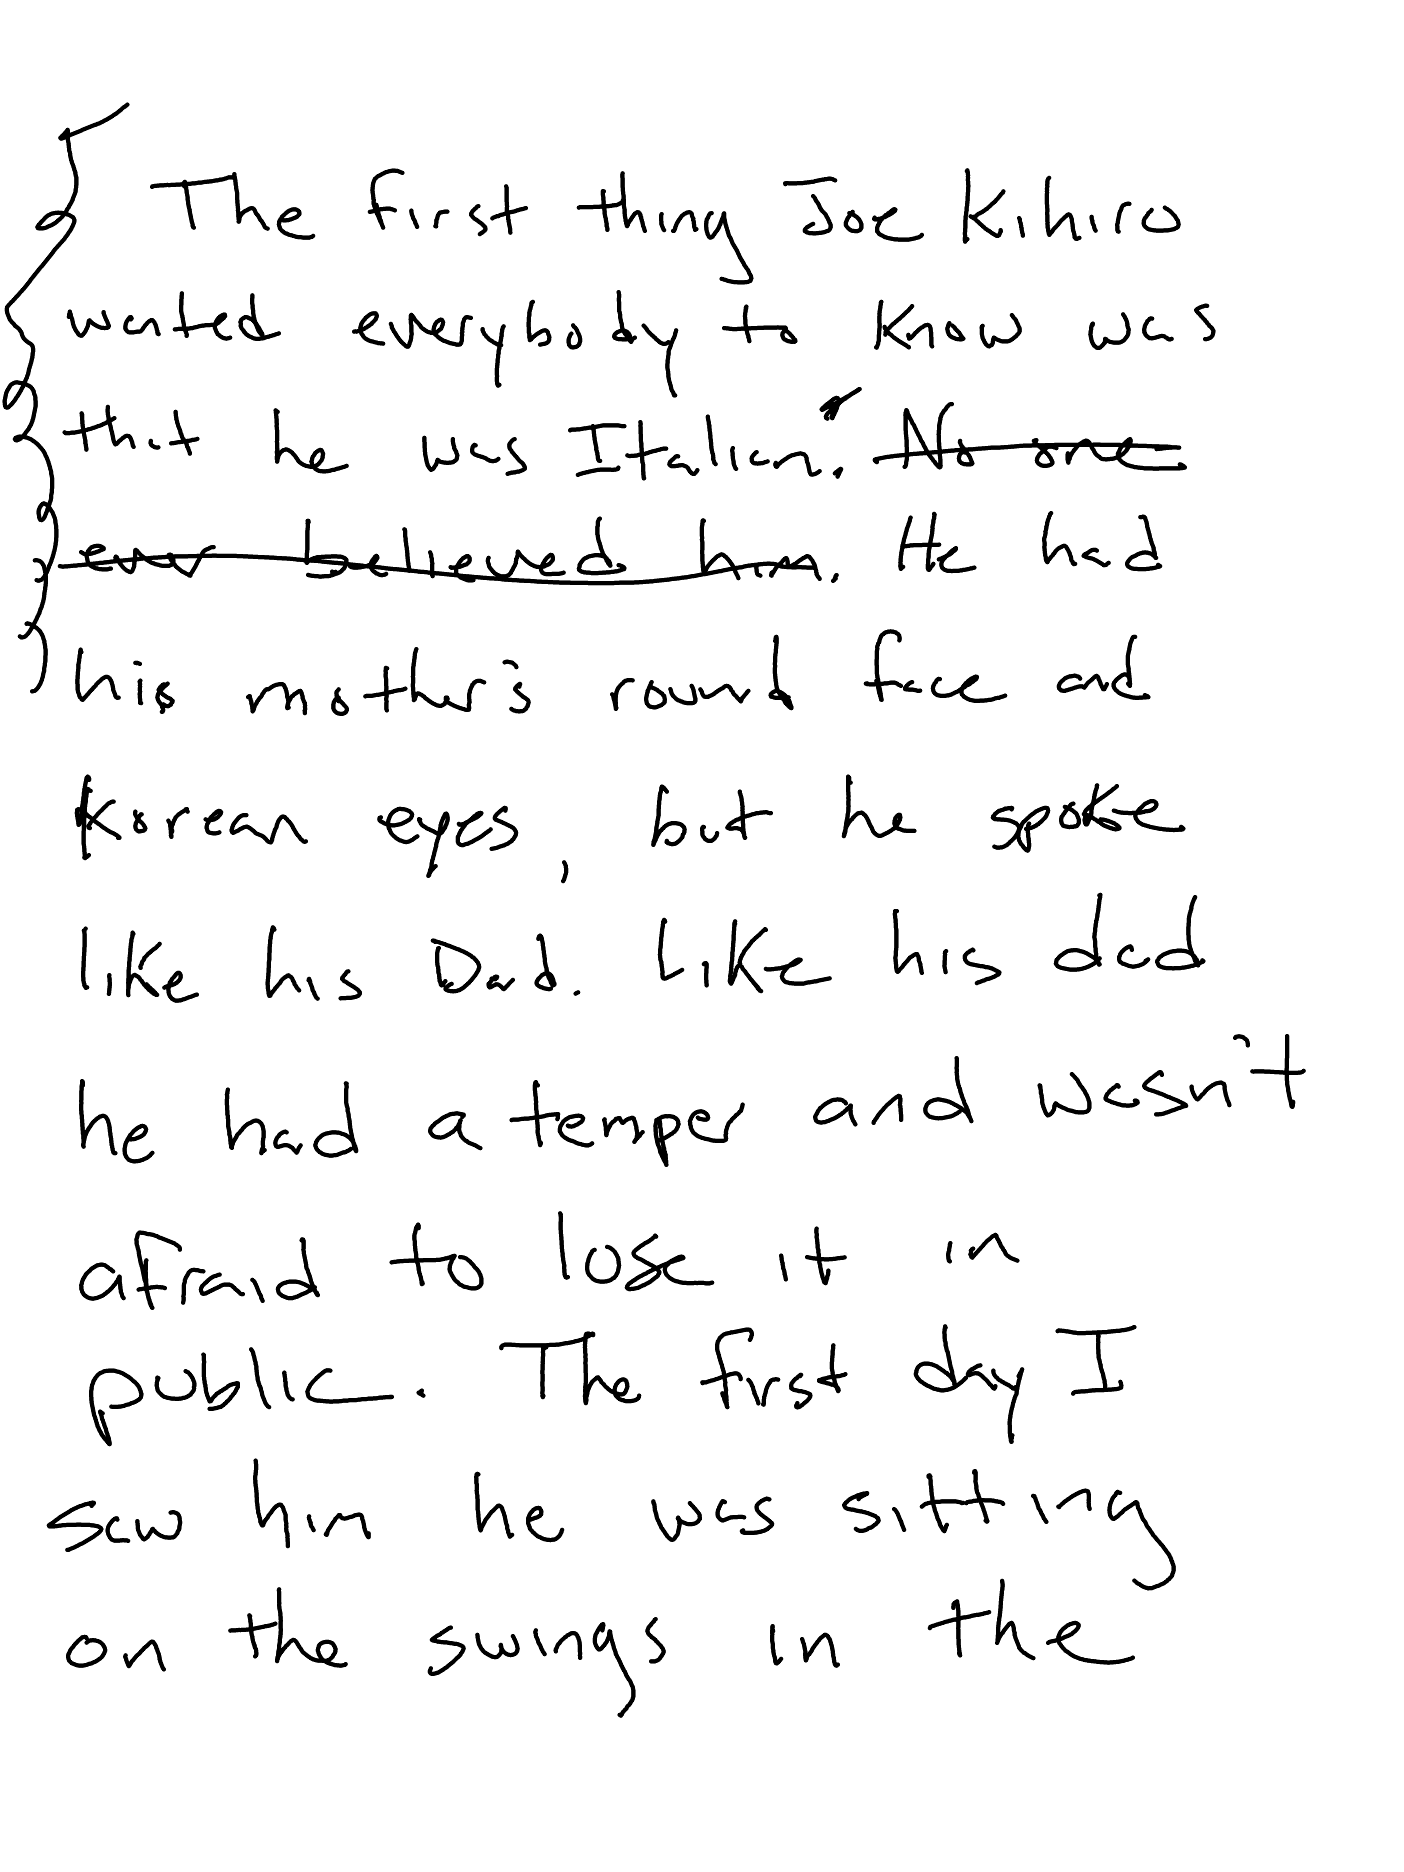 The first thing Joe Kihiro
wanted everybody to know was
that he was Italian. No one
ever believed him. He had
his mother's round face and
Korean eyes, but he spoke
like his Dad. Like his dad
he had a temper and wasn't
afraid to lose it in
public. The first day I
saw him he was sitting
on the swings in the